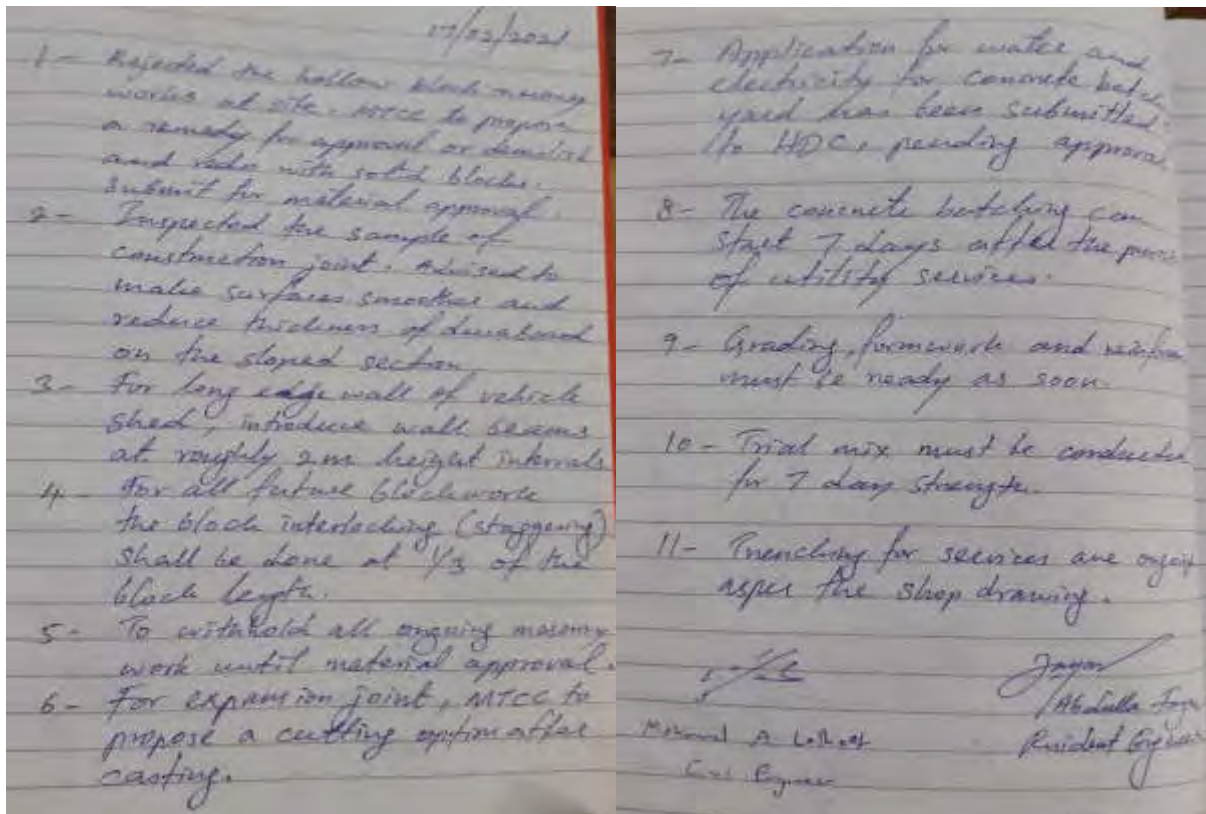 17/02/2021
1- Rejected the hollow block masonry
works at site. MTCC to propose
a remedy for approval or demolish
and redo with solid blocks.
Submit for material approval.
2- Inspected the sample of
construction joint. Advised to
make surfaces smoother and
reduce thickness of durabond
on the sloped section.
3- For long edge wall of vehicle
shed, introduce wall beams
at roughly 2m height intervals
4- For all future blockwork
the block interlocking (staggering)
shall be done at 1/3 of the
block length.
5- To withhold all ongoing masonry
work until material approval.
6- For expansion joint, MTCC to
propose a cutting option after
casting.
7- Application for water and
electricity for concrete batch
yard has been submitted
to HDC, pending approval
8- The concrete batching can
start 7 days after the
of utility services.
9- Grading, formwork and
must be ready as soon.
10- Trial mix must be conducted
for 7 day strength.
11- Trenching for services are
as per the shop drawing.
Abdulla
Mohamed A
Resident Engineer
Civil Engineer